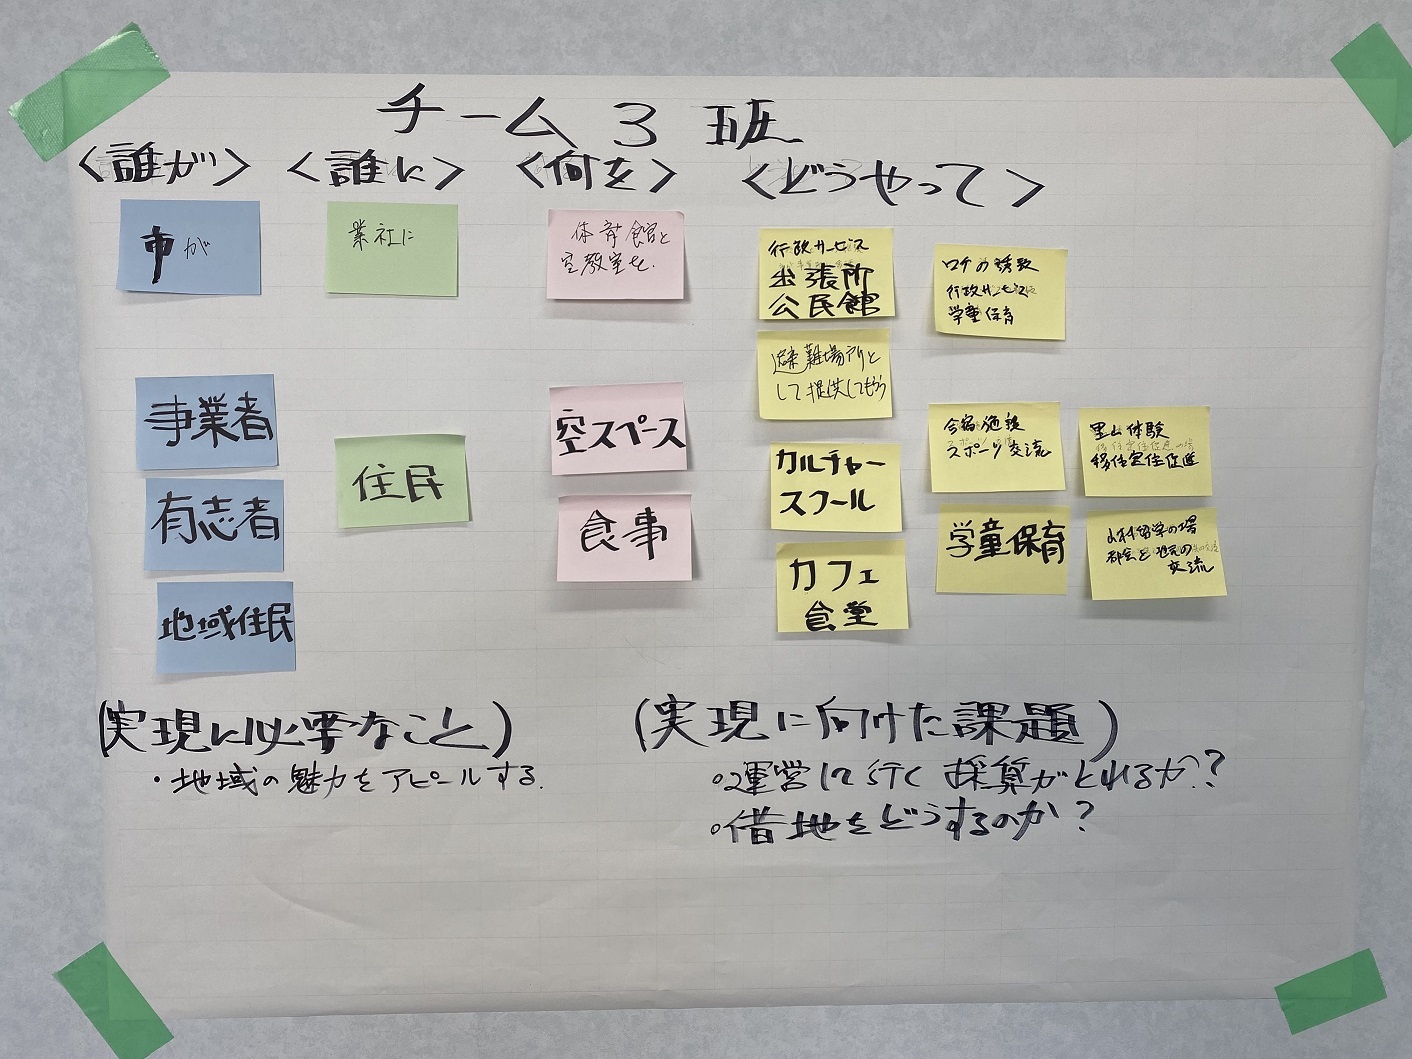 チーム 3 班
<誰が> <誰に> <何を> <どうやって>
市が
事業者
有志者
地域住民
業社に
住民
体育館と
空教室を.
空スペース
食事
行政サービス
出張所
公民館
避難場所と
して提供してもらう
カルチャー
スクール
カフェ
食堂
ロチの誘致
行政サービス
学童保育
合宿施設
スポーツ交流
学童保育
里山体験
移住定住促進
山村留学の場
都会と地元の
交流
(実現に必要なこと)
・地域の魅力をアピールする.
(実現に向けた課題)
○運営して行く採算がとれるか?
○借地をどうするのか?